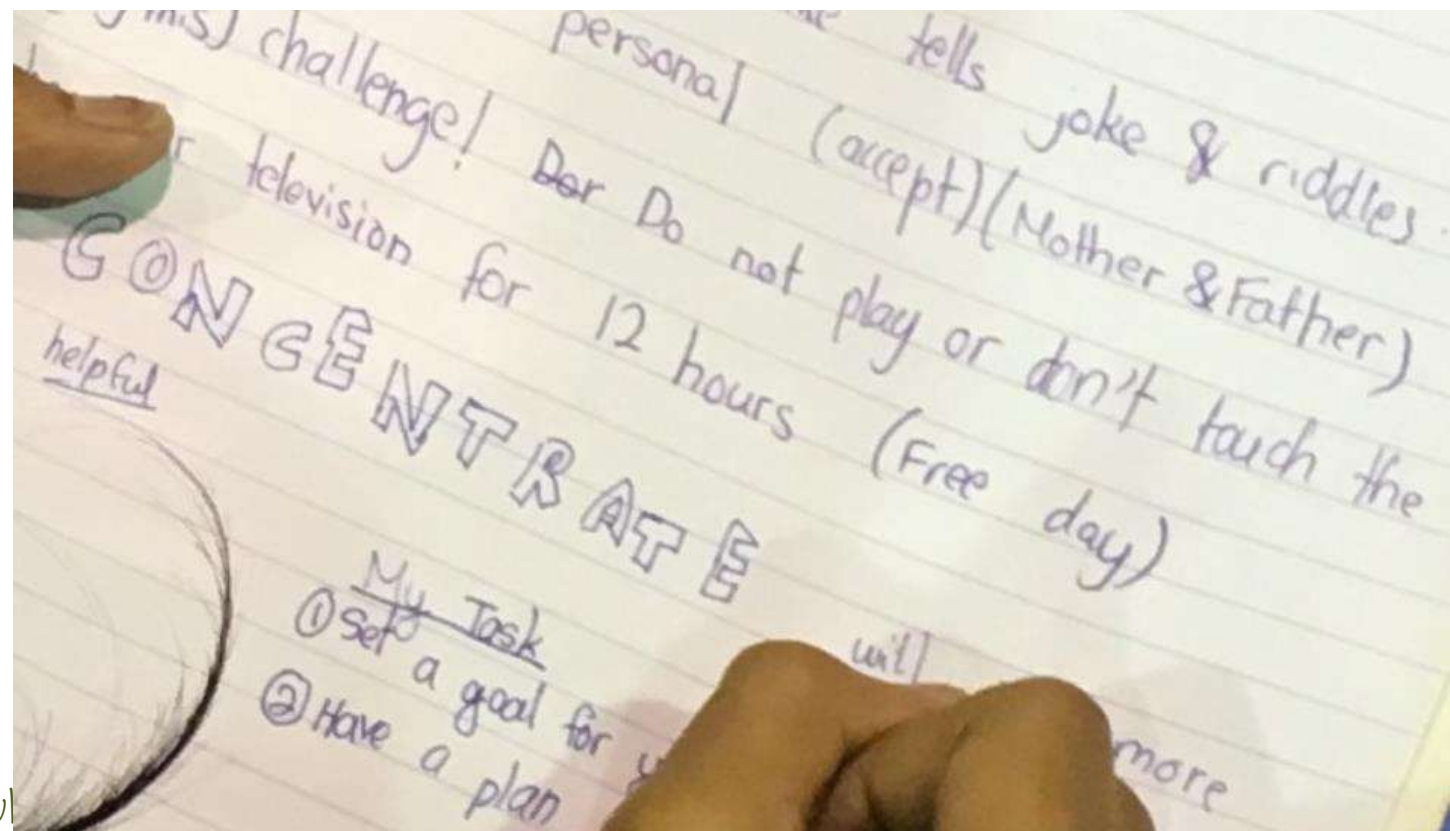 tells joke & riddles.
personal (accept)(Mother & Father)
challenge! Do not play or don't touch the
television for 12 hours (Free day)
CONCENTRATE
helpful
My Task
① Set a goal for
② Have a plan
will
more